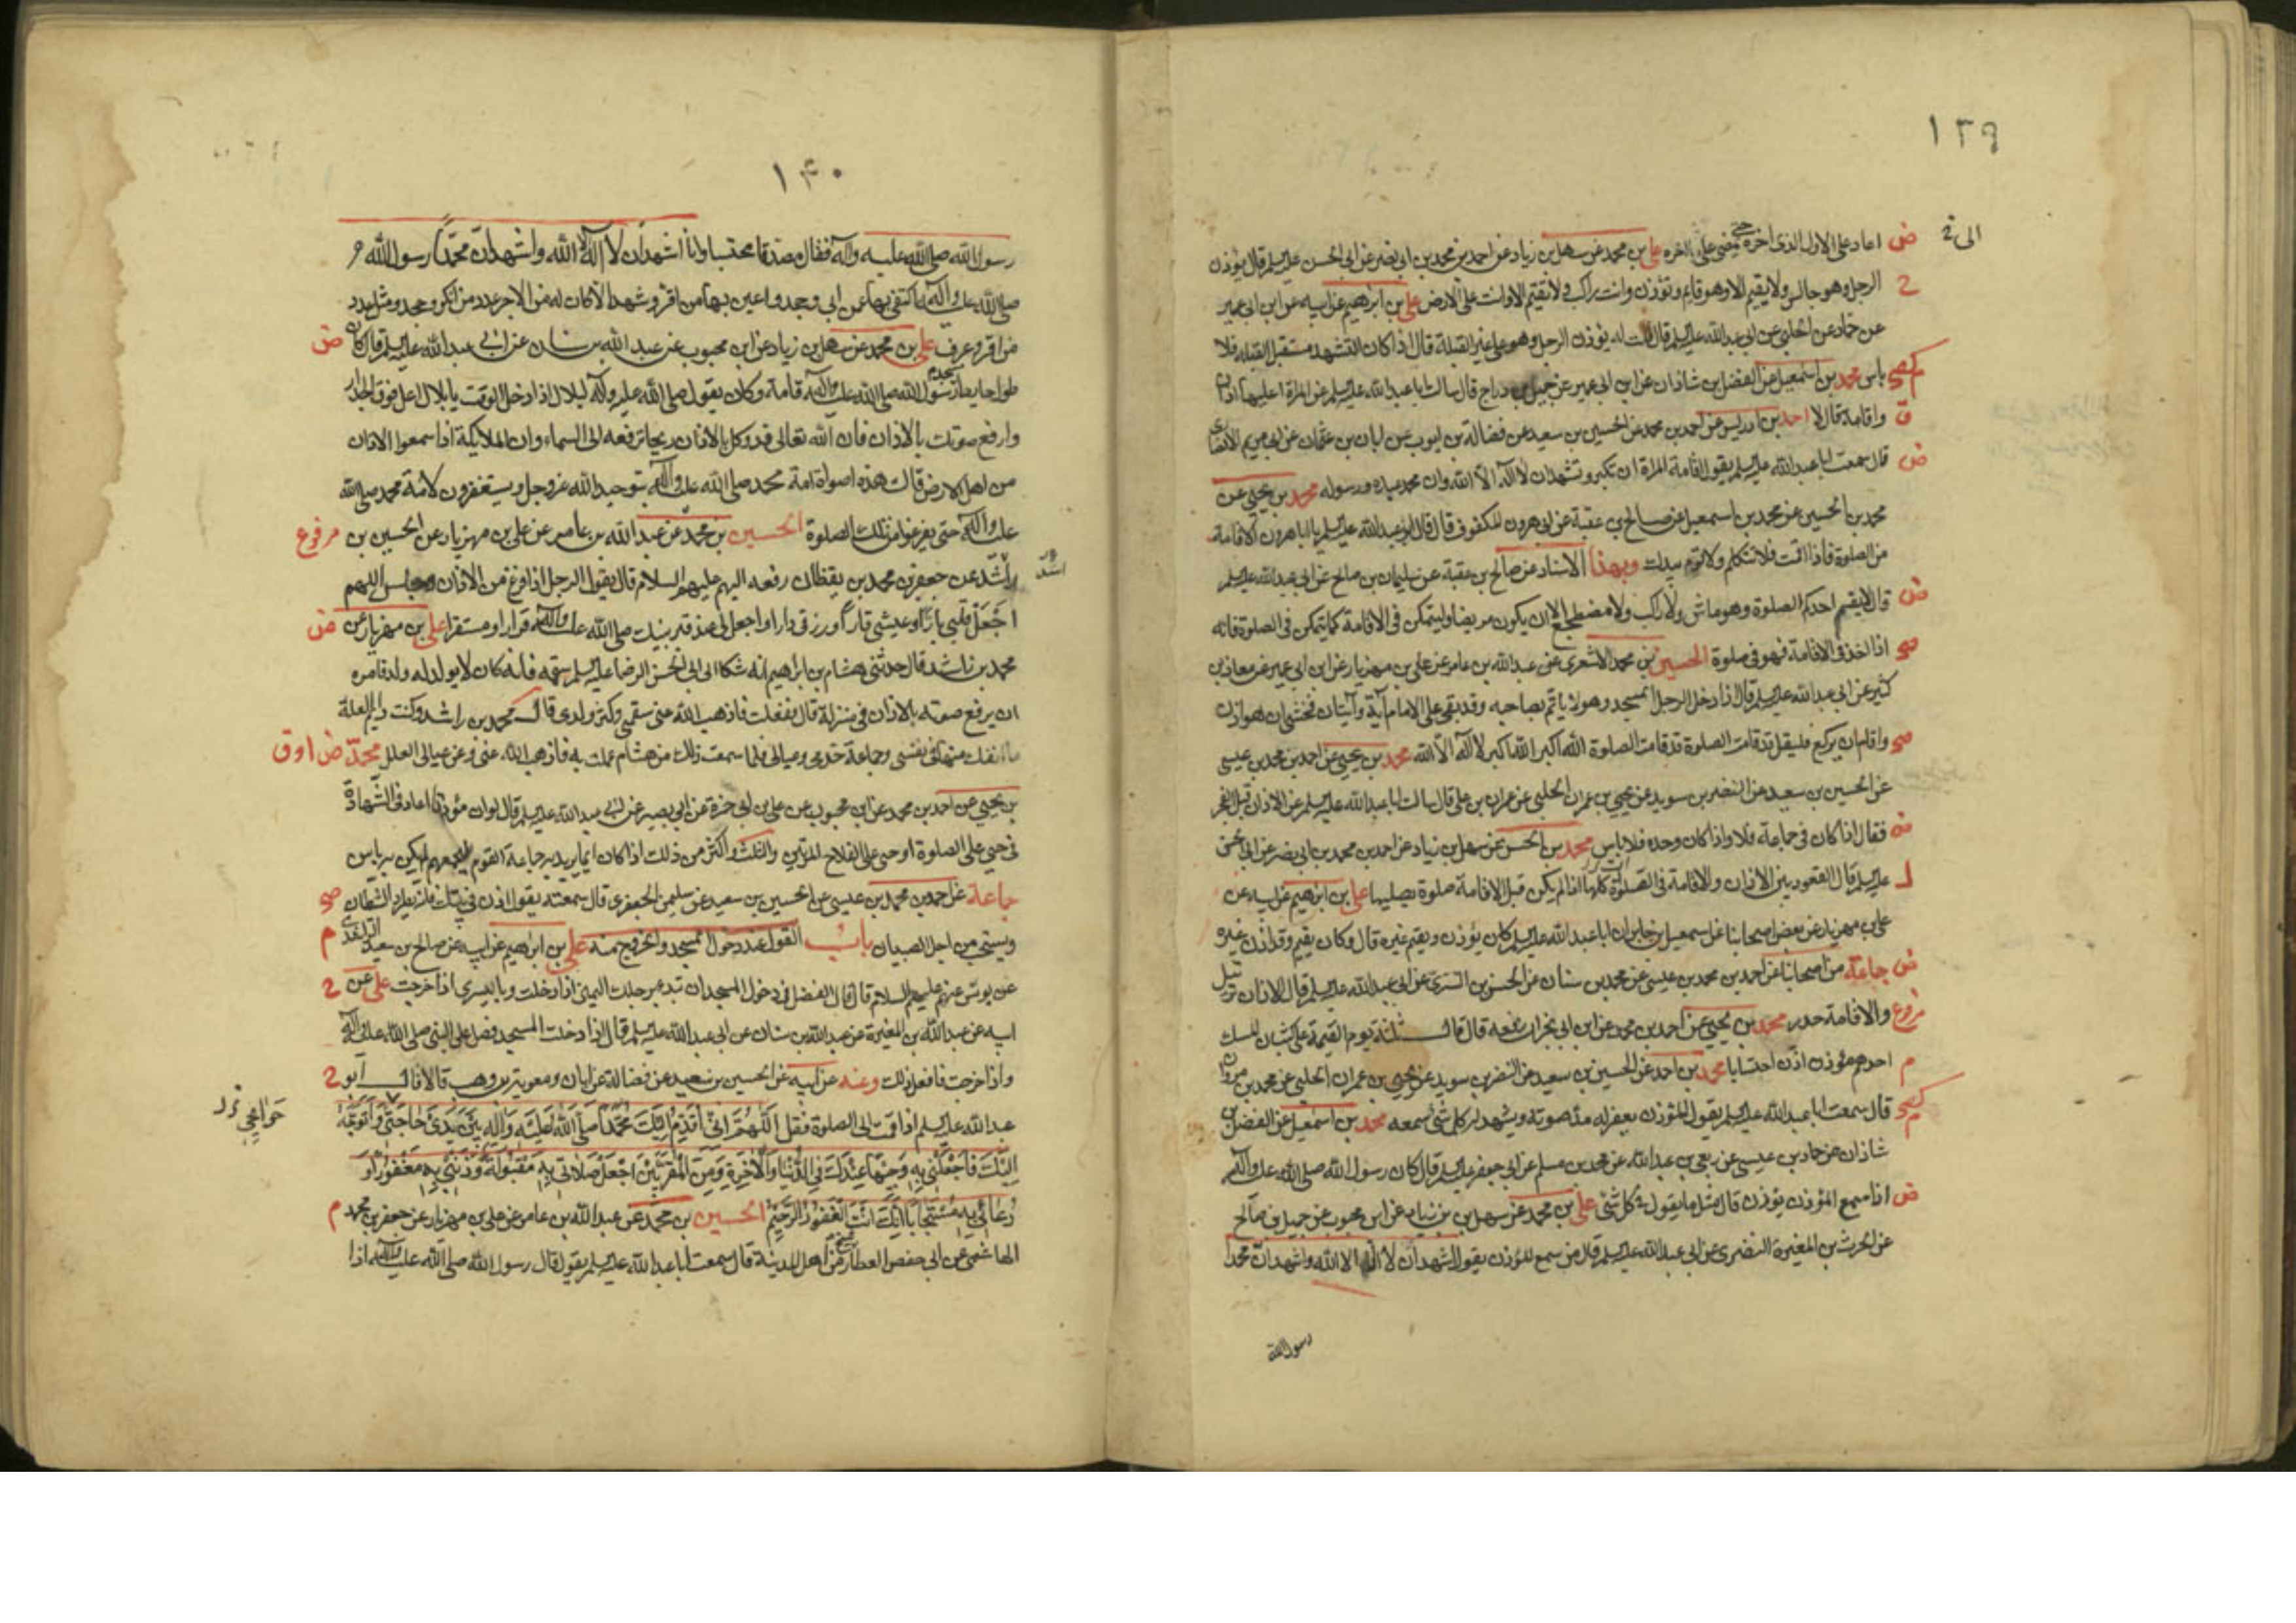 ١٣٩
الى
اعاد على الاول الذى اخره حتى يمضى على اخره على بن محمد عن سهل بن زياد عن احمد بن محمد بن ابى نصر عن ابى الحسن عليه السلم قال يؤذن
الرجل وهو جالس ولا يقيم الا وهو قايم وتؤذن وانت راكب ولا تقيم الا وانت على الارض على بن ابرهيم عن ابيه عن ابن ابى عمير
عن حماد عن الحلبى عن ابى عبد الله عليه السلم قال قلت له يؤذن الرجل وهو على غير القبلة قال اذا كان التشهد مستقبل القبلة فلا
باس محمد بن اسمعيل عن الفضل بن شاذان عن ابن ابى عمير عن جميل بن دراج قال سالت ابا عبد الله عليه السلم عن المراة اعليها اذان
واقامة قال لا احمد بن ادريس عن احمد بن محمد عن الحسين بن سعيد عن فضالة بن ايوب عن ابان بن عثمان عن ابى مريم الانصارى
قال سمعت ابا عبد الله عليه السلم يقول اقامة المراة ان تكبر وتشهد ان لا اله الا الله وان محمد عبده ورسوله محمد بن يحيى عن
محمد بن الحسين عن محمد بن اسمعيل عن صالح بن عقبة عن ابى هرون المكفوف قال قال ابو عبد الله عليه السلم يا ابا هرون الاقامة
من الصلوة فاذا اقمت فلا تتكلم ولا توم بيدك وبهذا الاسناد عن صالح بن عقبة عن سليمان بن صالح عن ابى عبد الله عليه السلم
قال لا يقيم احدكم الصلوة وهو ماش ولا راكب ولا مضطجع الا ان يكون مريضا وليتمكن فى الاقامة كما يتمكن فى الصلوة فانه
اذا اخذ فى الاقامة فهو فى صلوة الحسين بن محمد الاشعرى عن عبد الله بن عامر عن على بن مهزيار عن ابن ابى عمير عن معاذ بن
كثير عن ابى عبد الله عليه السلم قال اذا دخل الرجل المسجد وهو لا ياتم بصاحبه وقد بقى على الامام آية وآيتان فخشى ان هو اذن
واقام ان يركع فليقل قد قامت الصلوة قد قامت الصلوة الله اكبر الله اكبر لا اله الا الله محمد بن يحيى عن احمد بن محمد بن عيسى
عن الحسين بن سعيد عن النضر بن سويد عن يحيى بن عمران الحلبى عن عمران بن على قال سالت ابا عبد الله عليه السلم عن الاذان قبل الفجر
فقال اذا كان فى جماعة فلا واذا كان وحده فلا باس محمد بن الحسن عن سهل بن زياد عن احمد بن محمد بن ابى نصر عن ابى الحسن
عليه السلم قال القعود بين الاذان والاقامة فى الصلوة كلها اذا لم يكن قبل الاقامة صلوة يصليها على بن ابرهيم عن ابيه عن
على بن مهزيار عن بعض اصحابنا عن اسمعيل بن جابر ان ابا عبد الله عليه السلم كان يؤذن ويقيم غيره قال وكان يقيم وقد اذن غيره
جماعة من اصحابنا عن احمد بن محمد بن عيسى عن محمد بن سنان عن الحسن بن السرى عن ابى عبد الله عليه السلم قال الاذان ترتيل
والاقامة حدر محمد بن يحيى عن احمد بن محمد عن ابن ابى نجران رفعه قال قال ثلثة يوم القيمة على كثبان المسك
احدهم مؤذن اذن احتسابا محمد بن احمد عن الحسين بن سعيد عن النضر بن سويد عن يحيى بن عمران الحلبى عن محمد بن مروان
قال سمعت ابا عبد الله عليه السلم يقول المؤذن يغفر له مد صوته ويشهد له كل شىء سمعه محمد بن اسمعيل عن الفضل بن
شاذان عن حماد بن عيسى عن ربعى بن عبد الله عن محمد بن مسلم عن ابى جعفر عليه السلم قال كان رسول الله صلى الله عليه وآله
اذا سمع المؤذن يؤذن قال مثل ما يقول فى كل شىء على بن محمد عن سهل بن زياد عن ابن محبوب عن جميل بن صالح
عن الحرث بن المغيرة النضرى عن ابى عبد الله عليه السلم قال من سمع المؤذن يقول اشهد ان لا اله الا الله واشهد ان محمدا
رسول الله
١٤٠
رسول الله صلى الله عليه وآله فقال مصدقا محتسبا وانا اشهد ان لا اله الا الله واشهد ان محمدا رسول الله
صلى الله عليه وآله اكتفى بهما عمن ابى وجحد واعين بهما من اقر وشهد الا كان له من الاجر عدد من انكر وجحد ومثل عدد
من اقر وعرف على بن محمد عن سهل بن زياد عن ابن محبوب عن عبد الله بن سنان عن ابى عبد الله عليه السلم قال كان
طول حايط مسجد رسول الله صلى الله عليه وآله قامة وكان يقول صلى الله عليه وآله لبلال اذا دخل الوقت يا بلال اعل فوق الجدار
وارفع صوتك بالاذان فان الله تعالى قد وكل بالاذان ريحا ترفعه الى السماء وان الملايكة اذا سمعوا الاذان
من اهل الارض قالت هذه اصوات امة محمد صلى الله عليه وآله بتوحيد الله عز وجل ويستغفرون لامة محمد صلى الله
عليه وآله حتى يفرغوا من تلك الصلوة الحسين بن محمد عن عبد الله بن عامر عن على بن مهزيار عن الحسين بن مرفوع
راشد عن جعفر بن محمد بن يقظان رفعه اليهم عليهم السلام قال يقول الرجل اذا فرغ من الاذان وجلس اللهم
اجعل قلبى بارا وعيشى قارا ورزقى دارا واجعل لى عند قبر نبيك صلى الله عليه وآله قرارا ومستقرا على بن مهزيار عن
محمد بن راشد قال حدثنى هشام بن ابرهيم انه شكا الى ابى الحسن الرضا عليه السلم سقمه وانه كان لا يولد له ولد فامره
ان يرفع صوته بالاذان فى منزله قال ففعلت فاذهب الله عنى سقمى وكثر ولدى قال محمد بن راشد وكنت دايم العلة
ما انفك منها فى نفسى وجماعة خدمى وعيالى فلما سمعت ذلك من هشام عملت به فاذهب الله عنى وعن عيالى العلل محمد
بن يحيى عن احمد بن محمد عن ابن محبوب عن على بن ابى حمزة عن ابى بصير عن ابى عبد الله عليه السلم قال لو ان مؤذنا اعاد فى الشهادة
فى حى على الصلوة او حى على الفلاح المرتين والثلث واكثر من ذلك اذا كان انما يريد به جماعة القوم ليجمعهم لم يكن به باس
جماعة عن احمد بن محمد بن عيسى عن الحسين بن سعيد عن سليمن الجعفرى قال سمعته يقول اذن فى بيتك فانه يطرد الشيطان
ويستحب من اجل الصبيان باب القول عند دخول المسجد والخروج منه على بن ابرهيم عن ابيه عن صالح بن سعيد
عن يونس عنهم عليهم السلام قال قال الفضل فى دخول المسجد ان تبدء برجلك اليمنى اذا دخلت وباليسرى اذا خرجت على عن
ابيه عن عبد الله بن المغيرة عن عبد الله بن سنان عن ابى عبد الله عليه السلم قال اذا دخلت المسجد فصل على النبى صلى الله عليه وآله
واذا خرجت فافعل ذلك وعنه عن ابيه عن الحسين بن سعيد عن فضالة عن ابان ومعوية بن وهب قالا قال ابو
عبد الله عليه السلم اذا قمت الى الصلوة فقل اللهم انى اقدم اليك محمدا صلى الله عليه وآله بين يدى حاجتى واتوجه
اليك فاجعلنى به وجيها عندك فى الدنيا والآخرة ومن المقربين اجعل صلاتى به مقبولة وذنبى به مغفورا و
دعائى به مستجابا انك انت الغفور الرحيم الحسين بن محمد عن عبد الله بن عامر عن على بن مهزيار عن جعفر بن محمد
الهاشمى عن ابى حفص العطار شيخ من اهل المدينة قال سمعت ابا عبد الله عليه السلم يقول قال رسول الله صلى الله عليه وآله اذا